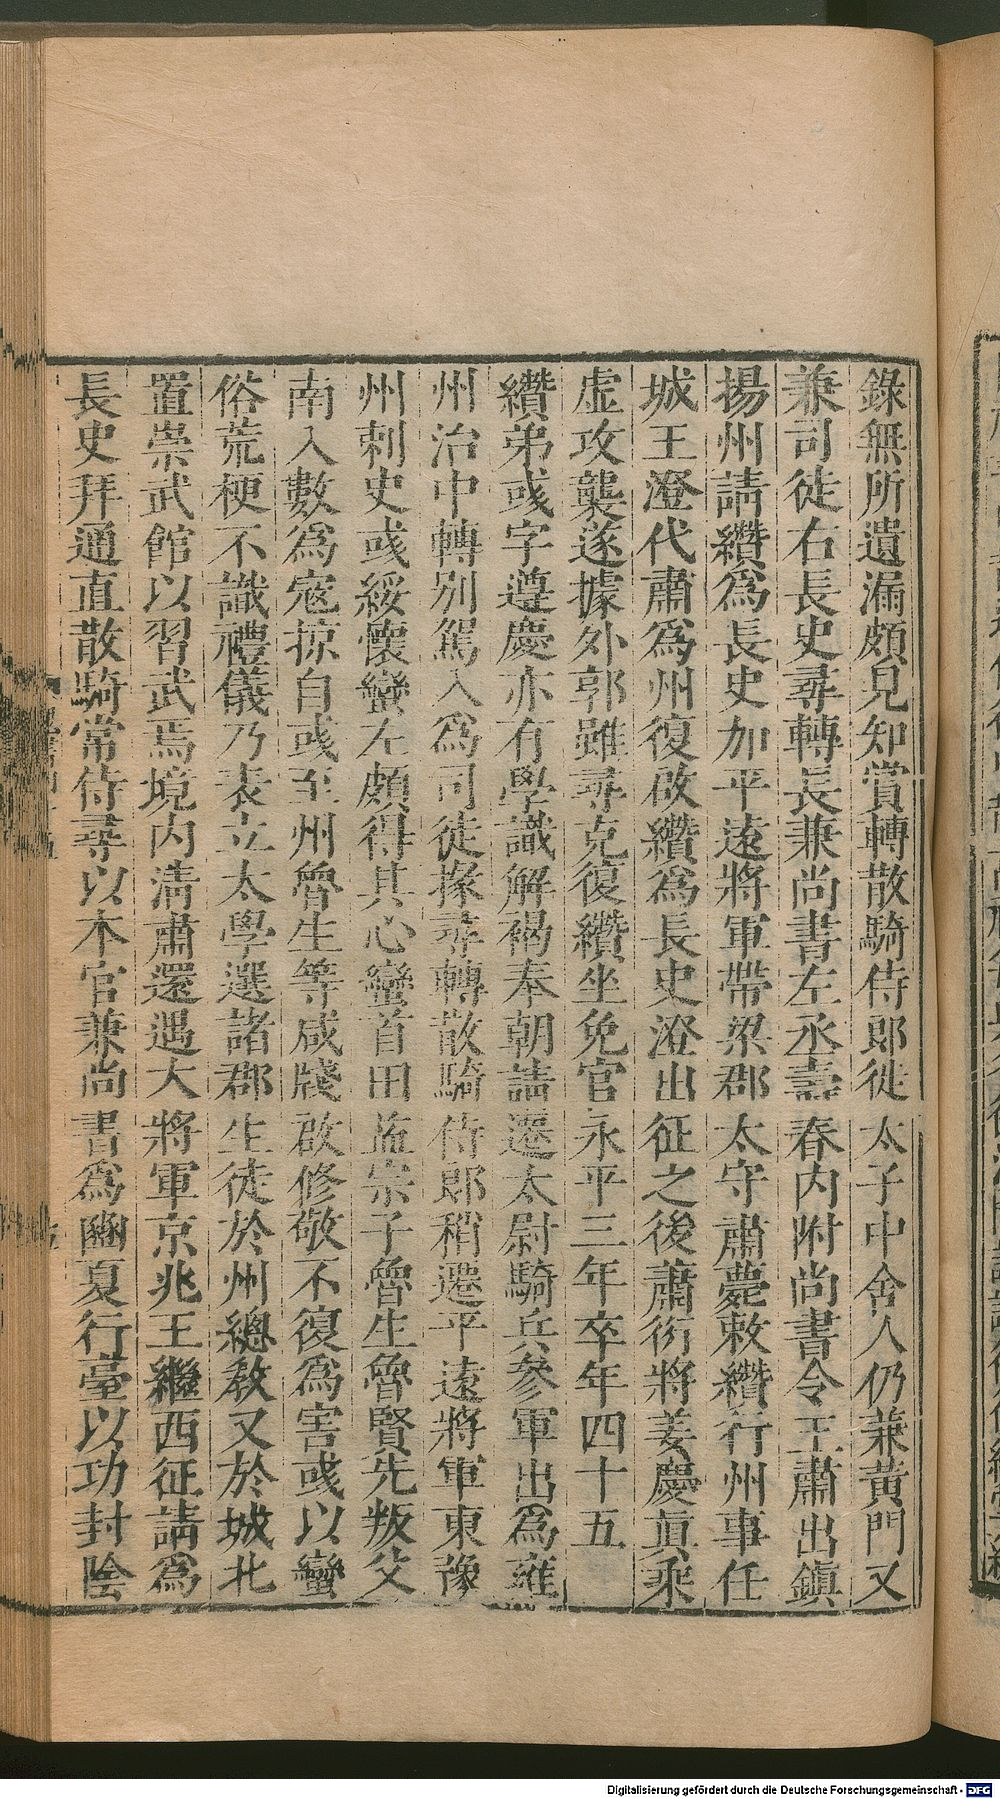 錄無所遺漏頗見知賞轉散騎侍郎徙太子中舍人仍兼黃門又
兼司徒右長史尋轉長兼尚書左丞壽春內附尚書令王肅出鎮
揚州請纘為長史加平遠將軍帶梁郡太守肅薨敕纘行州事任
城王澄代肅為州復啟纘為長史澄出征之後蕭衍將姜慶真乘
虛攻襲遂據外郭雖尋克復纘坐免官永平三年卒年四十五
纘弟彧字遵慶亦有學識解褐奉朝請遷太尉騎兵參軍出為雍
州治中轉別駕入為司徒掾尋轉散騎侍郎稍遷平遠將軍東豫
州刺史彧綏懷蠻左頗得其心蠻首田益宗子魯生魯賢先叛父
南入數為寇掠自彧至州魯生等咸牋啟修敬不復為害彧以蠻
俗荒梗不識禮儀乃表立太學選諸郡生徒於州總教又於城北
置崇武館以習武焉境內清肅還遇大將軍京兆王繼西征請為
長史拜通直散騎常侍尋以本官兼尚書為豳夏行臺以功封陰
Digitalisierung gefördert durch die Deutsche Forschungsgemeinschaft - DFG